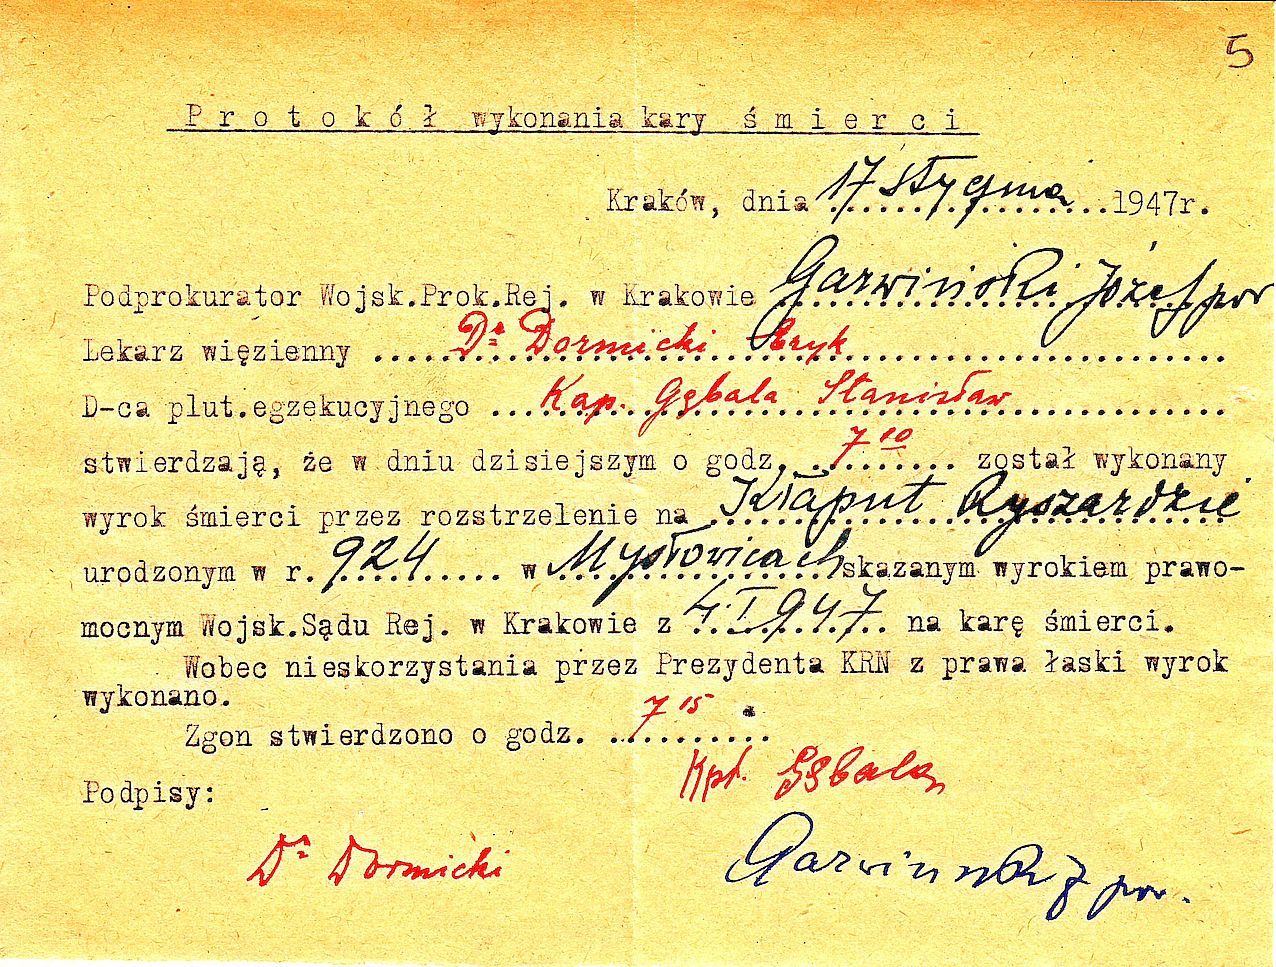 5
Protokół wykonania kary śmierci
Kraków, dnia 17 stycznia 1947r.
Podprokurator Wojsk.Prok.Rej. w Krakowie Garwiński Józef por
Lekarz więzienny Dr Dormicki
D-ca plut.egzekucyjnego Kap. Gębala Stanisław
stwierdzają, że w dniu dzisiejszym o godz. 7 10 został wykonany
wyrok śmierci przez rozstrzelenie na Kłaput Ryszardzie
urodzonym w r. 924 w Mysłowicach skazanym wyrokiem prawo-
mocnym Wojsk.Sądu Rej. w Krakowie z 4.I.947 na karę śmierci.
Wobec nieskorzystania przez Prezydenta KRN z prawa łaski wyrok
wykonano.
Zgon stwierdzono o godz. 7 15
Podpisy:
Kpt. Gębala
Dr Dormicki
Garwiński J por.